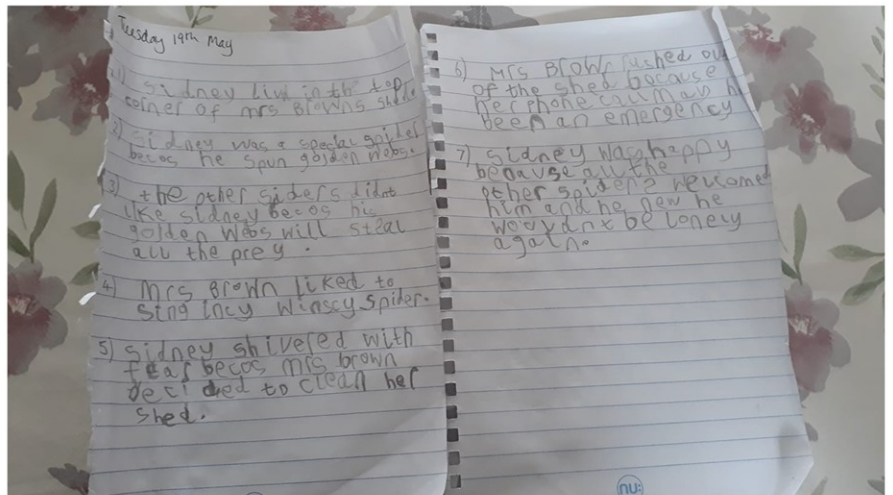 Tuesday 19th May
1) Sidney live in the top
corner of mrs Browns Shed.
2) Sidney was a special spider
becos he spun golden webs.
3) the other siders didnt
like sidney becos his
golden webs will steal
all the prey.
4) Mrs Brown liked to
sing incy winscy spider.
5) sidney shivered with
fear becos mrs brown
decided to clean her
shed.
6) Mrs Brown rushed out
of the shed because
her phone call may h
been an emergency
7) sidney was happy
because all the
other spiders welcomed
him and he new he
wouldnt be lonely
again.
nu: